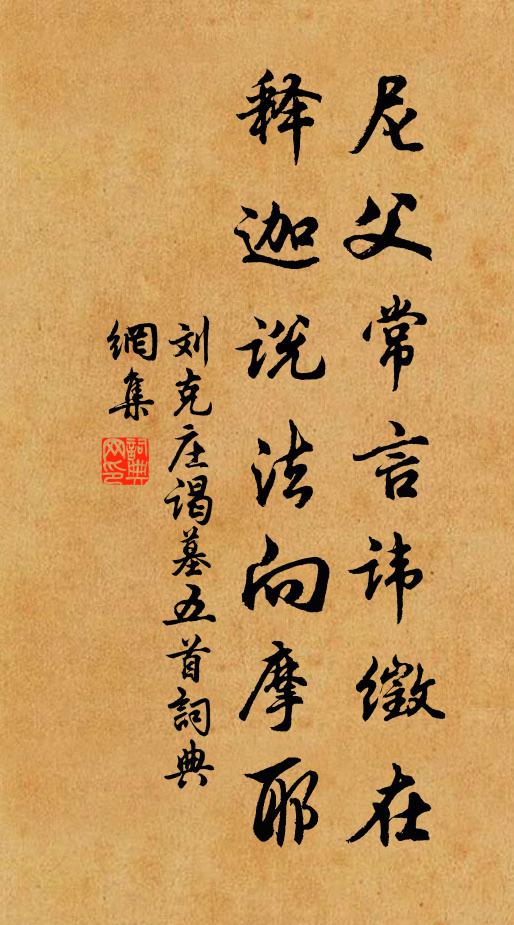 尼父常言讳徵在
释迦说法向摩耶
刘克庄谒墓五首詞典
網集
詞典網印